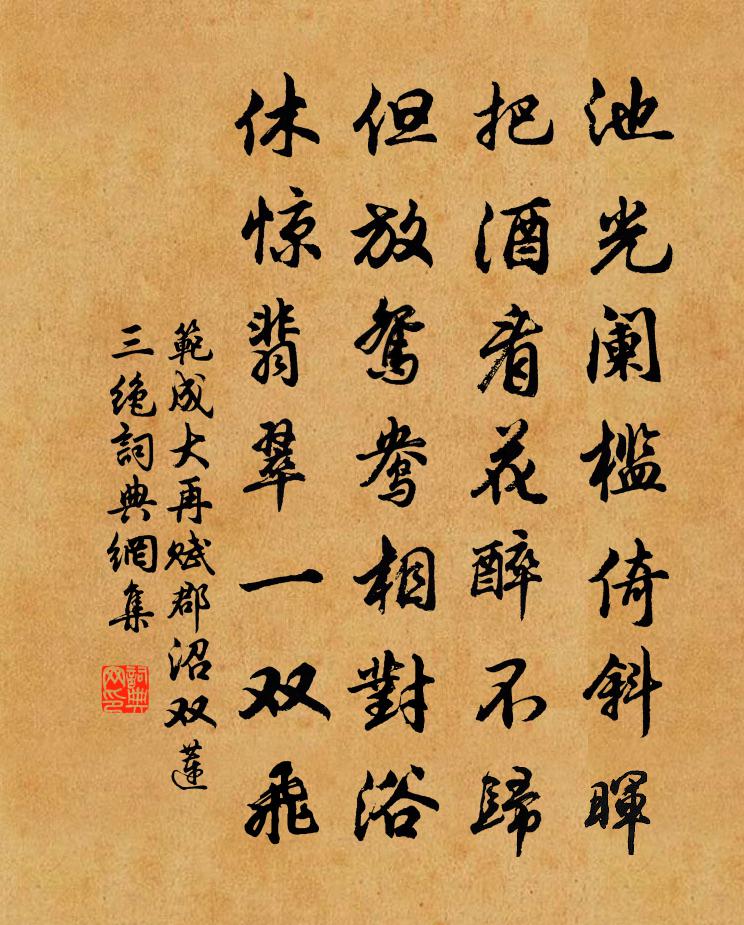 池光阑槛倚斜暉
把酒看花醉不歸
但放鴛鴦相對浴
休惊翡翠一双飛
範成大再赋郡沼双蓮
三绝詞典網集
詞典网印